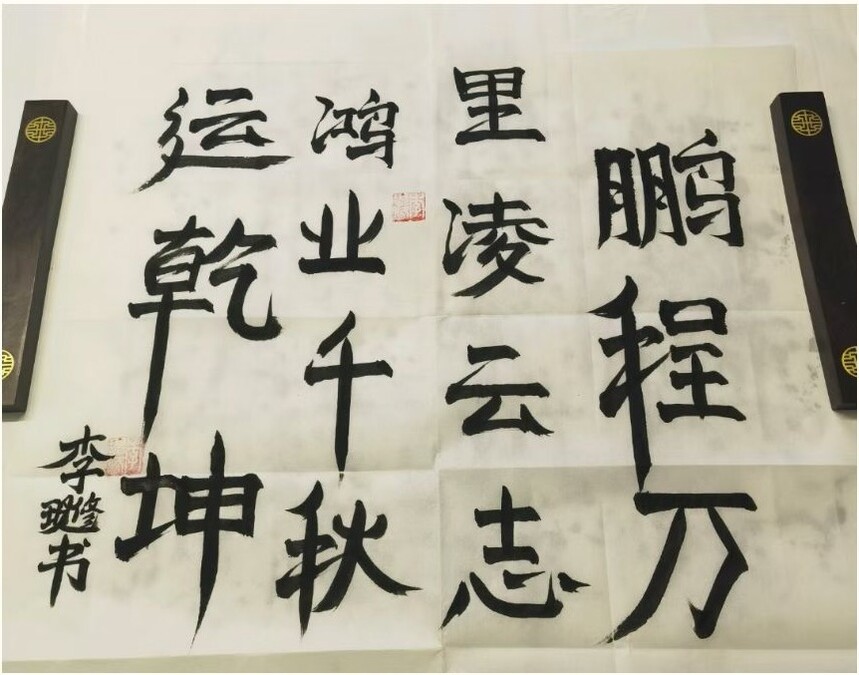 鹏程万
里凌云志
鸿业千秋
运乾坤
李
书